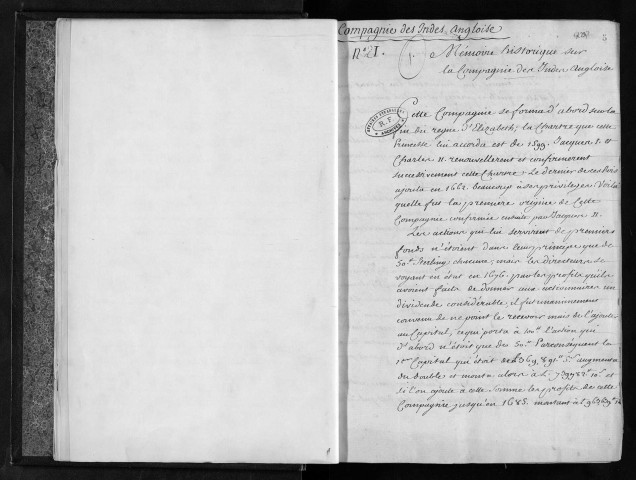 Compagnie des Indes Angloise
N.° 21.
Mémoire historique sur
la Compagnie des Indes Angloise
Cette Compagnie se forma d'abord sur la
fin du regne d'Elizabeth; la Chartre que cette
Princesse lui accorda est de 1599. Jacques I. et
Charles II. renouvellerent et confirmerent
successivement cette Chartre. Le dernier de ces Rois
ajouta en 1662. beaucoup à ses privileges. Voilà
quelle fut la premiere origine de Cette
Compagnie confirmée ensuite par Jacques II.
Les actions qui lui servirent de premiers
fonds n'étoient dans leur principe que de
50.# Sterling chacune; mais les directeurs se
voyant en état en 1676. par les profits qu'ils
avoient faits de donner aux actionnaires un
dividende considérable, il fut unanimement
convenu de ne point le recevoir mais de l'ajouter
au Capital; ce qui porta à 100.# l'action qui
d'abord n'étoit que de 50.# Par conséquent le
1.er Capital qui étoit de £369,891.# 5.s augmenta
du double et monta alors à £. 739782.# 10.s et
si l'on ajoute à cette somme les profits de cette
Compagnie jusqu'en 1685. montant à £.963639.#
AFFAIRES ETRANGERES
R.F.
ARCHIVES